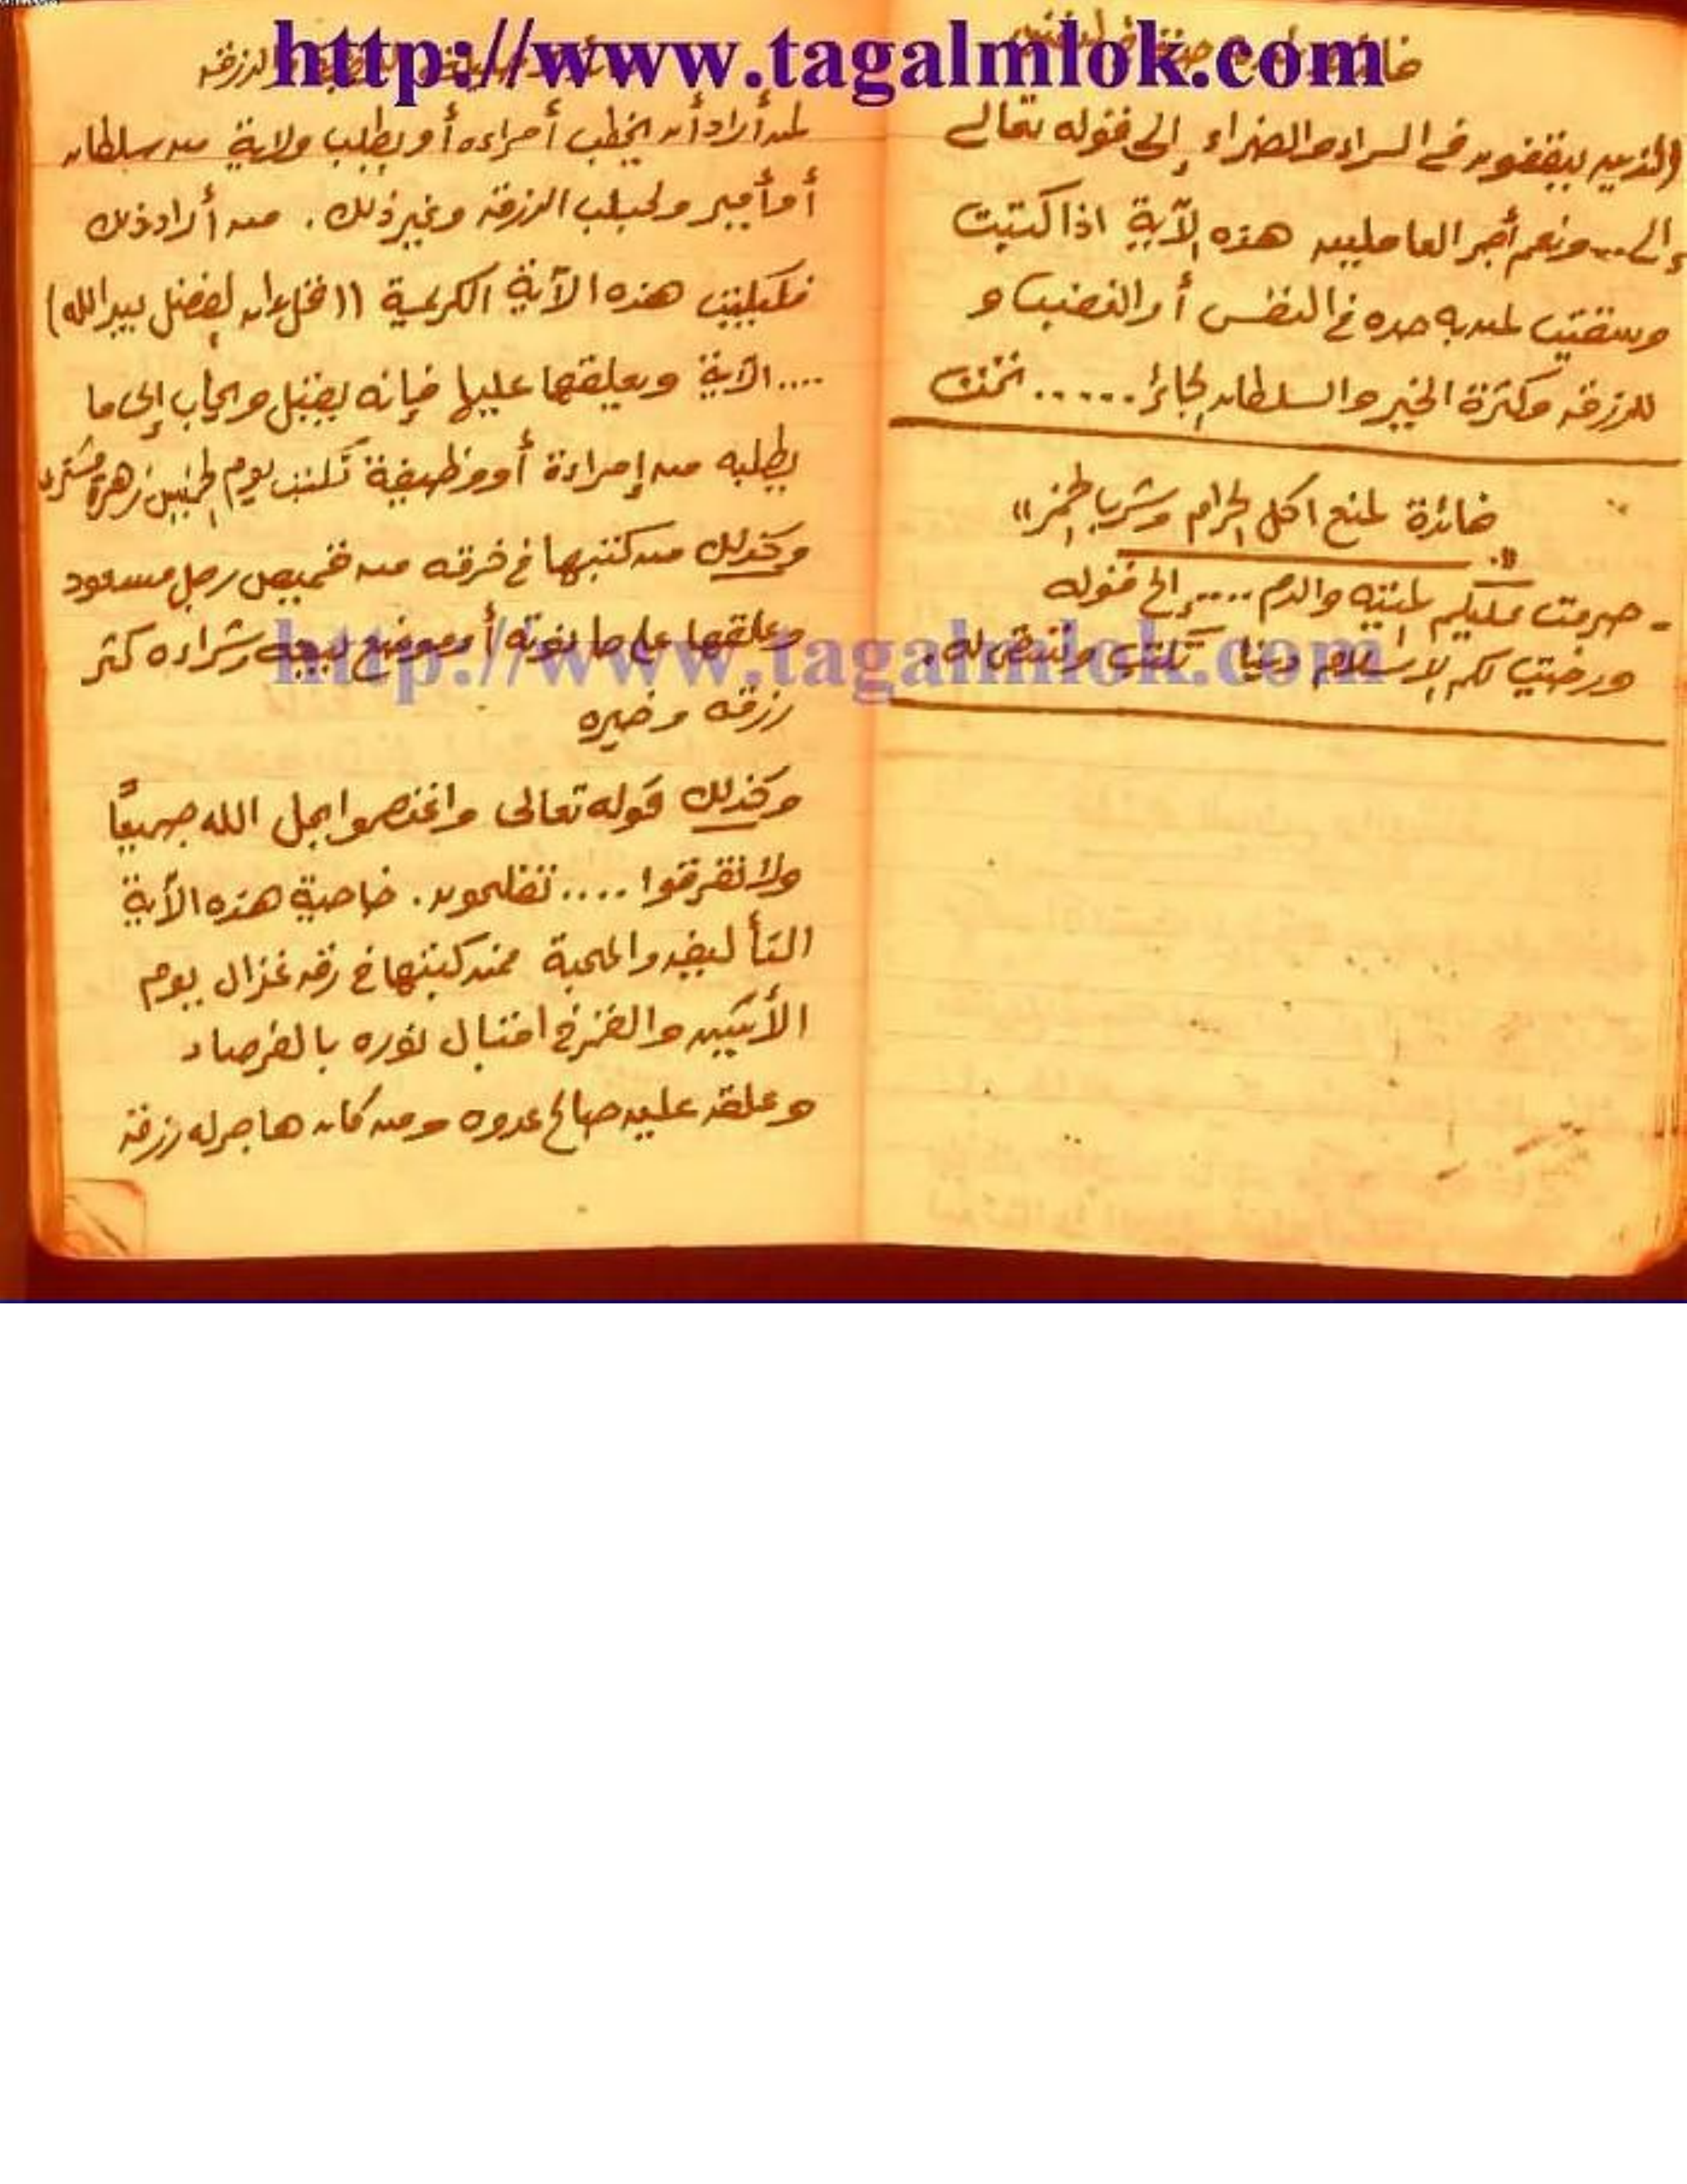 http://www.tagalmlok.com
الذين ينفقون في السراء والضراء إلى قوله تعالى
إلى... ونعم أجر العاملين هذه الآية اذا كتبت
وسقيت لمن به حده في النفس أو الغضب و
للرزق وكثرة الخير والسلطان الجائر......
فائدة لمنع اكل الحرام وشرب الخمر»
- حرمت عليكم الميته والدم.... إلى قوله
ورضيت لكم الإسلام دينا تكتب وتسقى له.
والرزق
لمن أراد أن يخطب أمراءه أو يطلب ولاية من سلطان
أو أمير ولجلب الرزق وغير ذلك. من أراد ذلك
فليكتب هذه الآية الكريمة ((قل ان الفضل بيد الله)
....الآية ويعلقها عليها فإنه يقبل ويجاب إلى ما
يطلبه من إمراءة أو وظيفة تكتب يوم الخميس زهرة مشتري
وكذلك من كتبها في خرقه من قميص رجل مسعود
وعلقها على حانوته أو موضع بيعه وشراءه كثر
رزقه وخيره
http://www.tagalmlok.com
وكذلك قوله تعالى واعتصموا بحبل الله جميعًا
ولا تفرقوا .... تفلحون. خاصية هذه الآية
التأليف والمحبة فمن كتبها في رق غزال يوم
الأثنين والقمر في اقبال نوره بالفرصاد
وعلق عليه صالح عدوه ومن كان هاجر له رزق